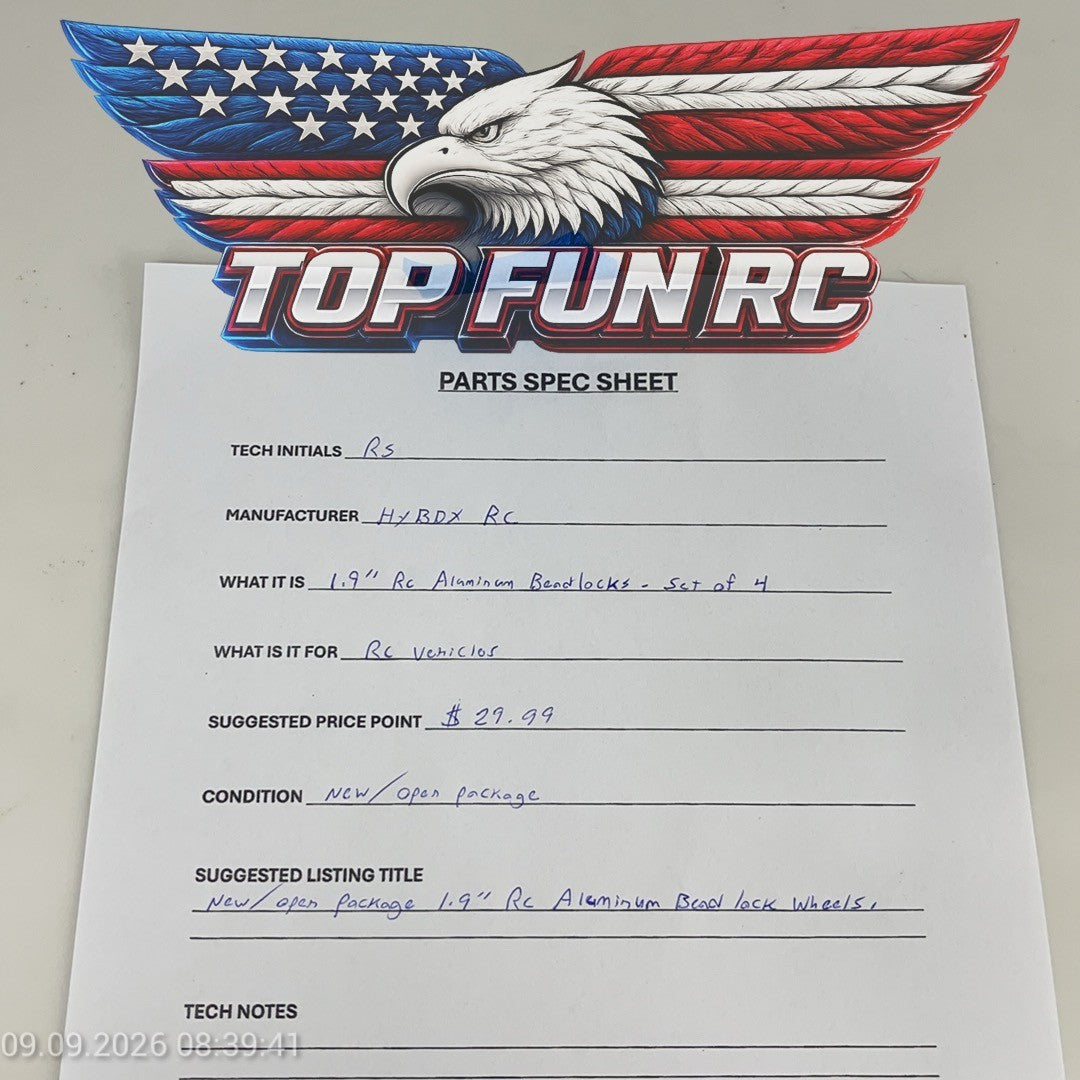 TOP FUN RC
PARTS SPEC SHEET
TECH INITIALS RS
MANUFACTURER HYBDX RC
WHAT IT IS 1.9" Rc Aluminum Beadlocks - Set of 4
WHAT IS IT FOR Rc Vehicles
SUGGESTED PRICE POINT $ 29.99
CONDITION New/open package
SUGGESTED LISTING TITLE
New/open package 1.9" Rc Aluminum Bead lock Wheels.
TECH NOTES
09.09.2026 08:39:41